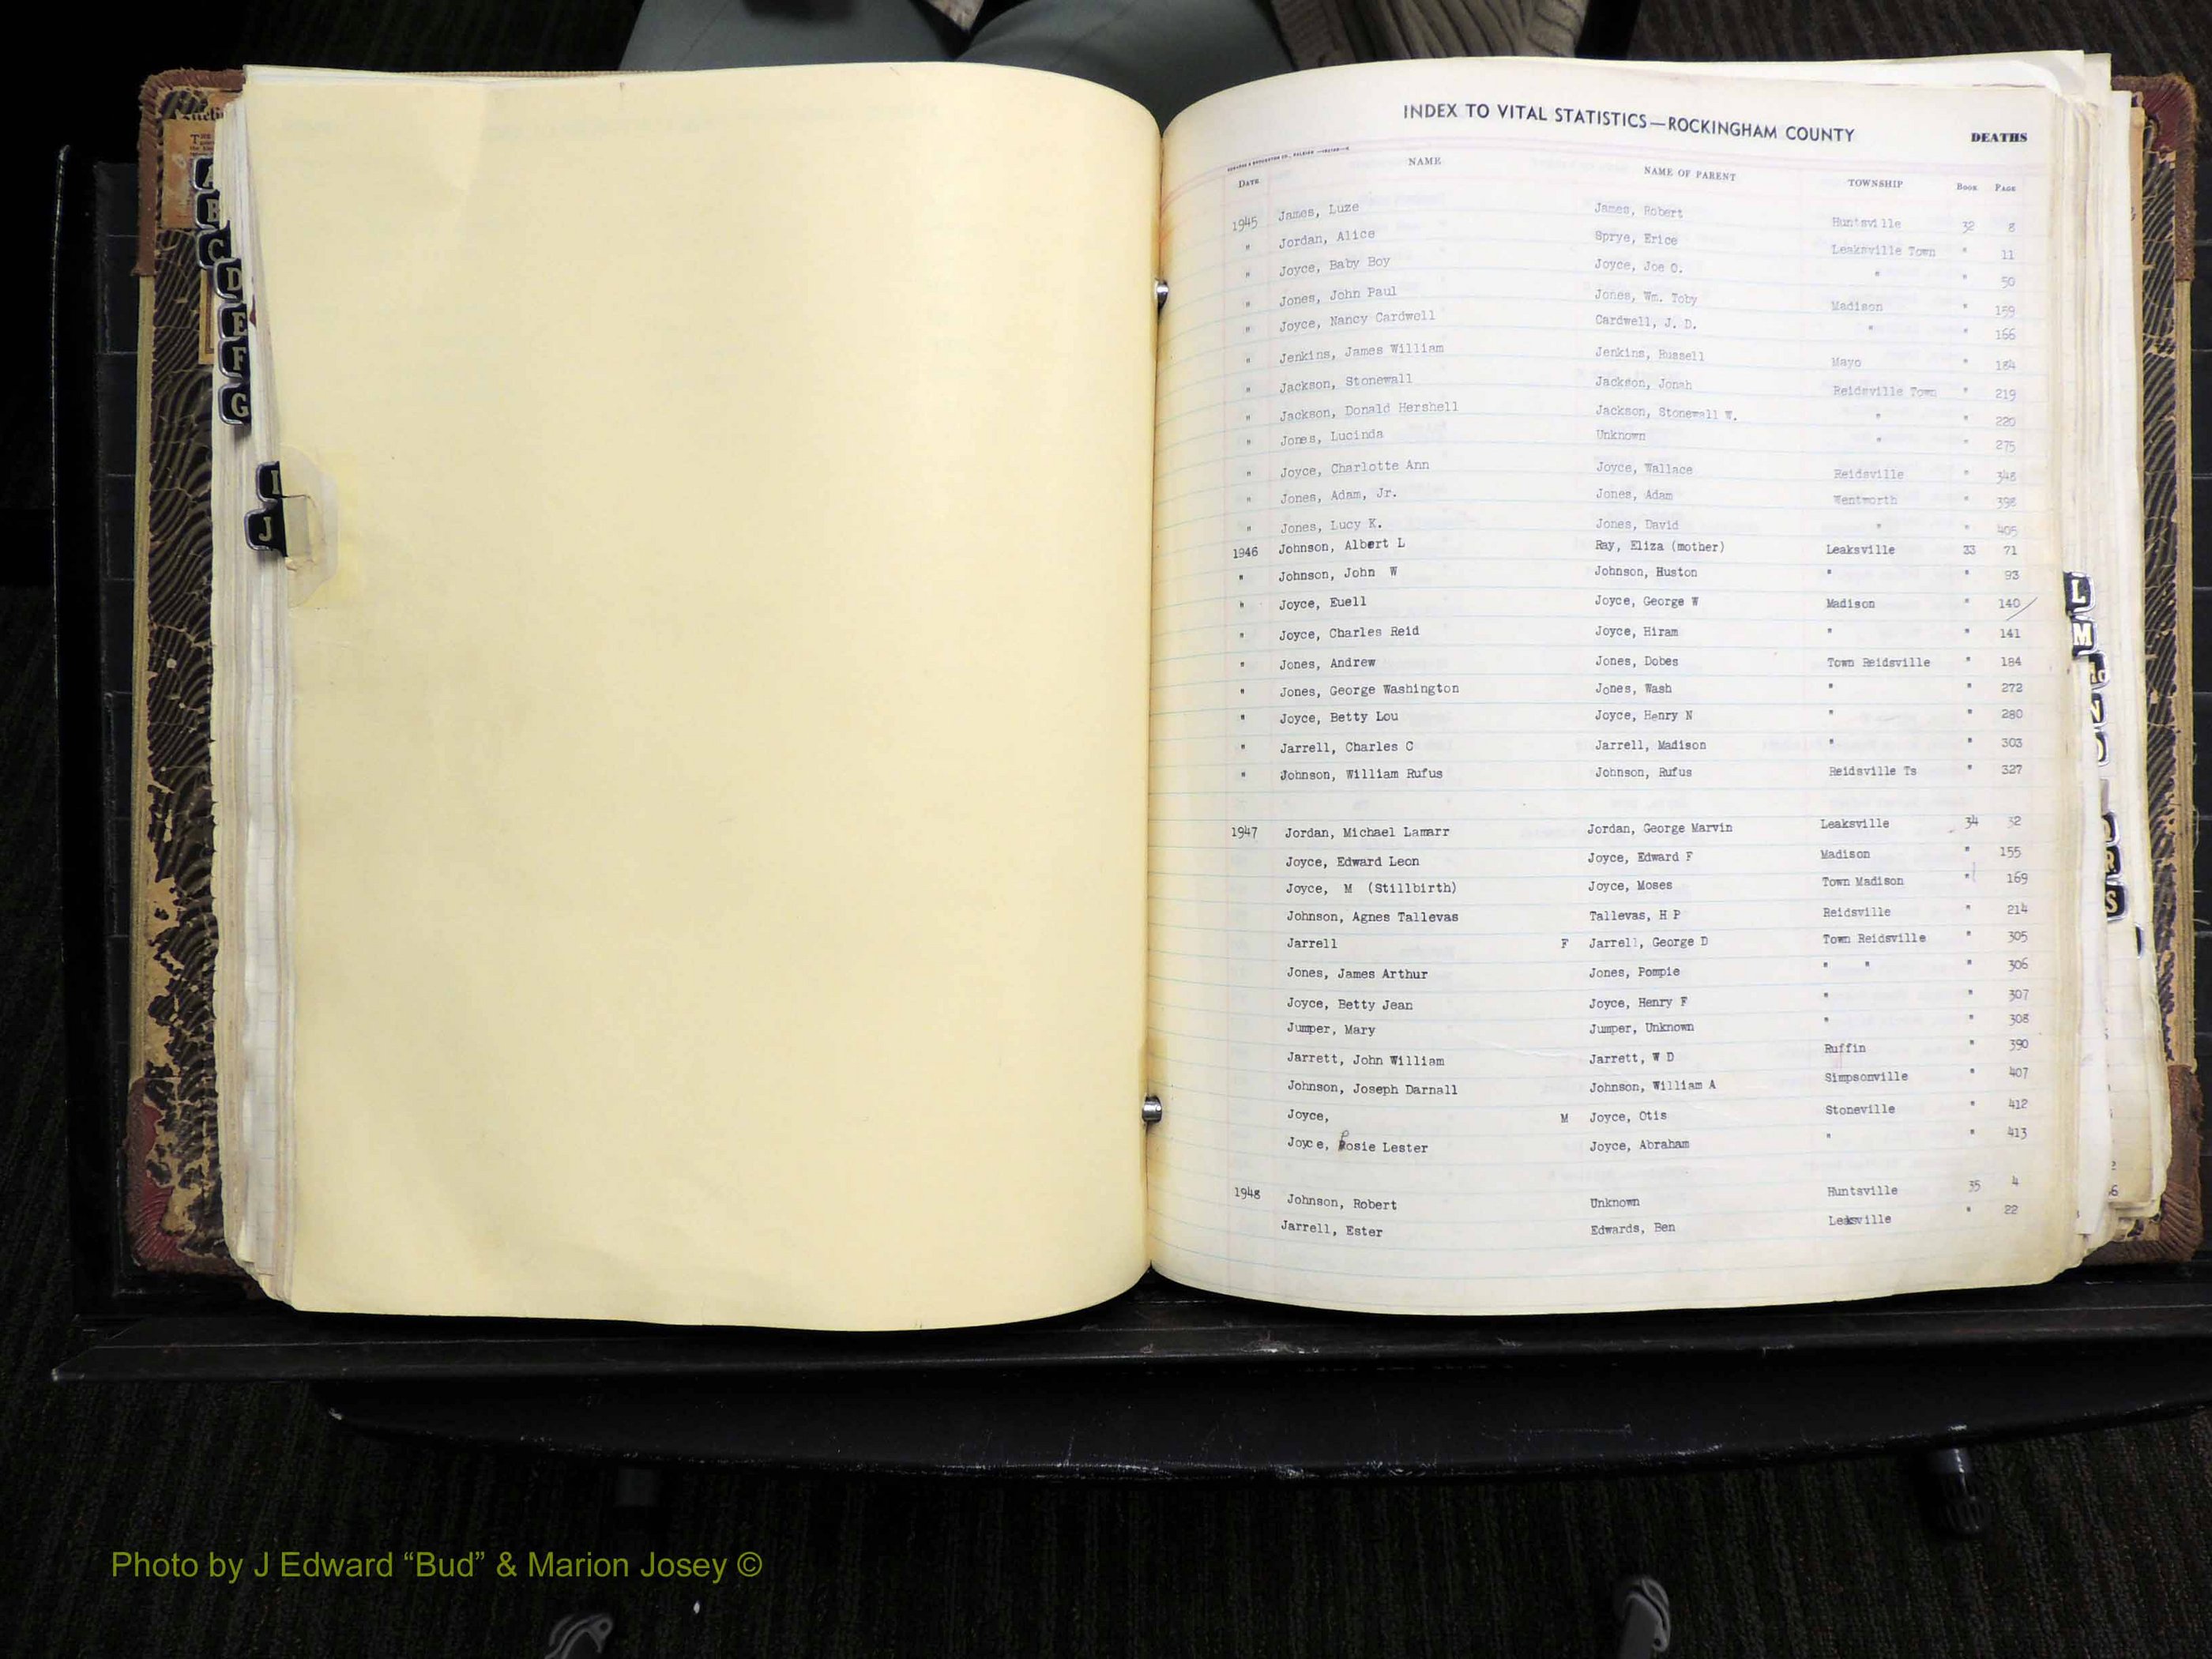 A
B
C
D
E
F
G
I
J
INDEX TO VITAL STATISTICS—ROCKINGHAM COUNTY DEATHS
DATE NAME NAME OF PARENT TOWNSHIP BOOK PAGE
1945 James, Luze James, Robert Huntsville 32 8
" Jordan, Alice Sprye, Erice Leaksville Town " 11
" Joyce, Baby Boy Joyce, Joe O. " " 50
" Jones, John Paul Jones, Wm. Toby Madison " 159
" Joyce, Nancy Cardwell Cardwell, J. D. " " 166
" Jenkins, James William Jenkins, Russell Mayo " 184
" Jackson, Stonewall Jackson, Jonah Reidsville Town " 219
" Jackson, Donald Hershell Jackson, Stonewall W. " " 220
" Jones, Lucinda Unknown " " 275
" Joyce, Charlotte Ann Joyce, Wallace Reidsville " 348
" Jones, Adam, Jr. Jones, Adam Wentworth " 398
" Jones, Lucy K. Jones, David " " 405
1946 Johnson, Albert L Ray, Eliza (mother) Leaksville 33 71
" Johnson, John W Johnson, Huston " " 93
" Joyce, Euell Joyce, George W Madison " 140/
" Joyce, Charles Reid Joyce, Hiram " " 141
" Jones, Andrew Jones, Dobes Town Reidsville " 184
" Jones, George Washington Jones, Wash " " 272
" Joyce, Betty Lou Joyce, Henry N " " 280
" Jarrell, Charles C Jarrell, Madison " " 303
" Johnson, William Rufus Johnson, Rufus Reidsville Ts " 327
1947 Jordan, Michael Lamarr Jordan, George Marvin Leaksville 34 52
Joyce, Edward Leon Joyce, Edward F Madison " 155
Joyce, M (Stillbirth) Joyce, Moses Town Madison " 169
Johnson, Agnes Tallevas Tallevas, H P Reidsville " 214
Jarrell F Jarrell, George D Town Reidsville " 305
Jones, James Arthur Jones, Pompie " " " 306
Joyce, Betty Jean Joyce, Henry F " " 307
Jumper, Mary Jumper, Unknown " " 308
Jarrett, John William Jarrett, W D Ruffin " 390
Johnson, Joseph Darnall Johnson, William A Simpsonville " 407
Joyce, M Joyce, Otis Stoneville " 412
Joyce, Rosie Lester Joyce, Abraham " " 413
1948 Johnson, Robert Unknown Huntsville 35 4
Jarrell, Ester Edwards, Ben Leaksville " 22
L
M
R
S
Photo by J Edward “Bud” & Marion Josey ©